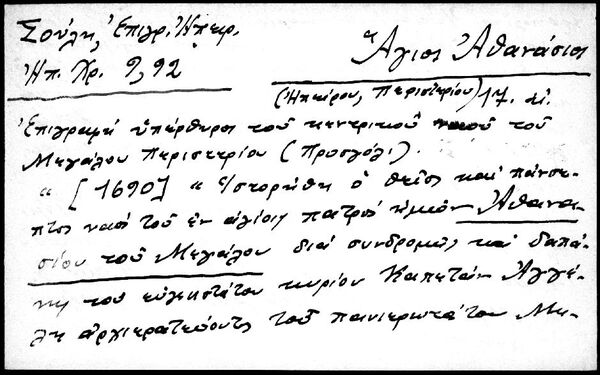 Σούλη, Ἐπιγρ. Ἠπειρ.
Ἠπ. Χρ. 9, 92
Ἅγιος Ἀθανάσιος
(Ἠπείρου, Περιστερίου) 17. αἰ.
Ἐπιγραφή ὑπέρθυρος τοῦ κεντρικοῦ ναοῦ τοῦ
Μεγάλου Περιστερίου (Προσγόλι).
" [1690] " Ἱστορήθη ὁ θεῖος καί πάνσε-
πτος ναός τοῦ ἐν ἁγίοις πατρός ἡμῶν Ἀθανα-
σίου τοῦ Μεγάλου διά συνδρομῆς καί δαπά-
νης τοῦ εὐγενεστάτου κυρίου Καπετάν Ἀγγέ-
λη ἀρχιερατεύοντος τοῦ πανιερωτάτου Μη-